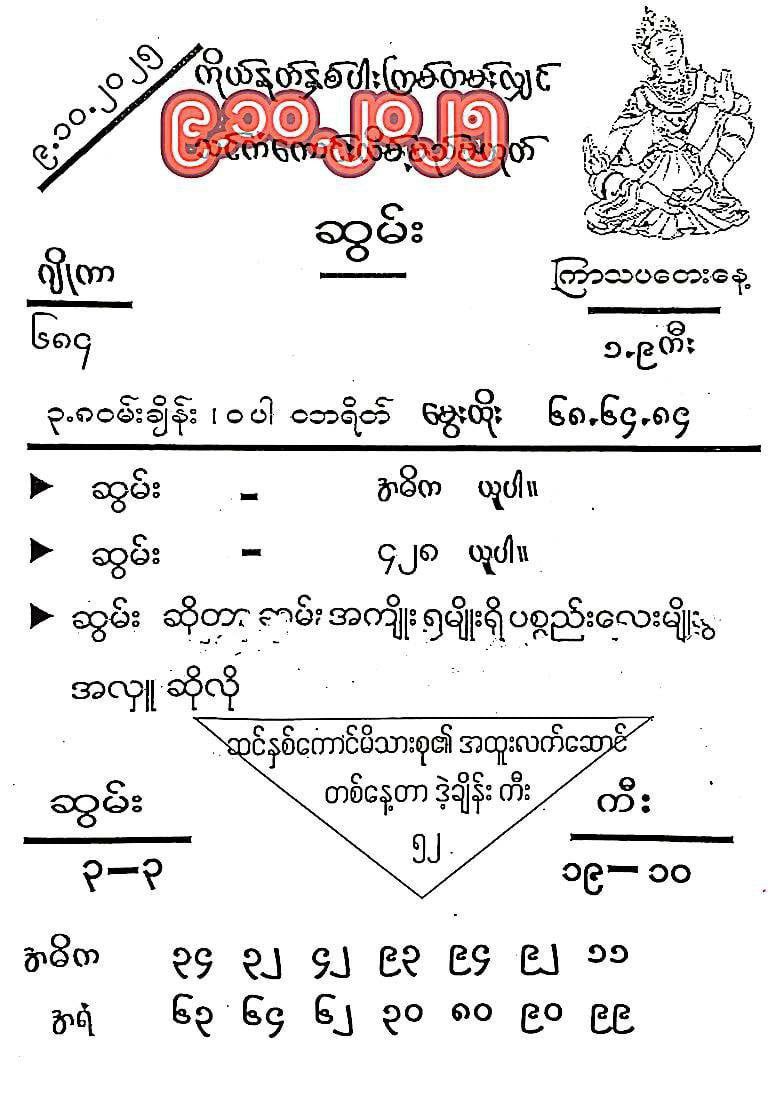 ၉.၁၀.၂၀၂၅
ကိုယ်နတ်နှစ်ပါးကြမ်တမ်းလျှင်
၉.၁၀.၂၀၂၅
ဆွမ်း
ဂျိုကာ
ကြာသပတေးနေ့
၆၈၄
၁.၉ကီး
၃.၈ဝမ်းချိန်း ၊ ဝပါ ဝဘရိတ် မွေးထိုး ၆၈.၆၄.၈၄
ဆွမ်း - အဓိက ယူပါ။
ဆွမ်း - ၄၂၈ ယူပါ။
ဆွမ်း ဆိုတာ ဆွမ်း အကျိုး ၅မျိုးရှိ ပစ္စည်းလေးမျိုး
အလှူ ဆိုလို
ဆင်နှစ်ကောင်မိသားစု၏ အထူးလက်ဆောင်
တစ်နေ့တာ ဒဲ့ချိန်း ကီး
၅၂
ဆွမ်း
ကီး
၃–၃
၁၉–၁၀
အဓိက ၃၄ ၃၂ ၄၂ ၉၃ ၉၄ ၉၂ ၁၁
အရံ ၆၃ ၆၄ ၆၂ ၃၀ ၈၀ ၉၀ ၉၉